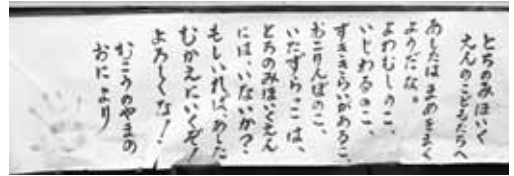 とちのみほいく
えんのこどもたちへ
あしたはまめをまく
ようだな。
よわむしのこ、
いじわるのこ、
すききらいがあるこ、
おこりんぼのこ、
いたずらっこは、
とちのみほいくえん
には、いないか？
もしいれば、あした
むかえにいくぞ！
よろしくな！
むこうのやまの
おにより